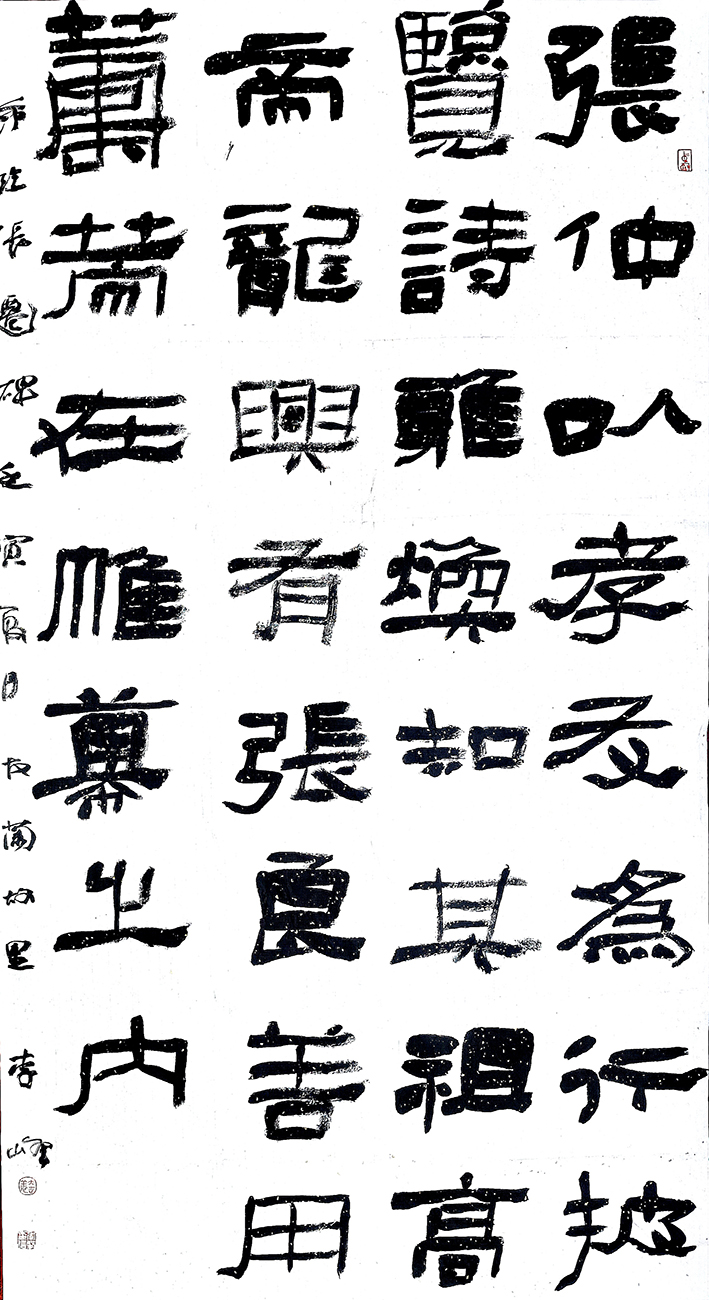 張仲㕥孝友為行披
覽詩雅煥知其祖高
帝龍興有張良善用
籌策在帷幕之內
臨張遷碑壬寅夏月於蘭里李峰